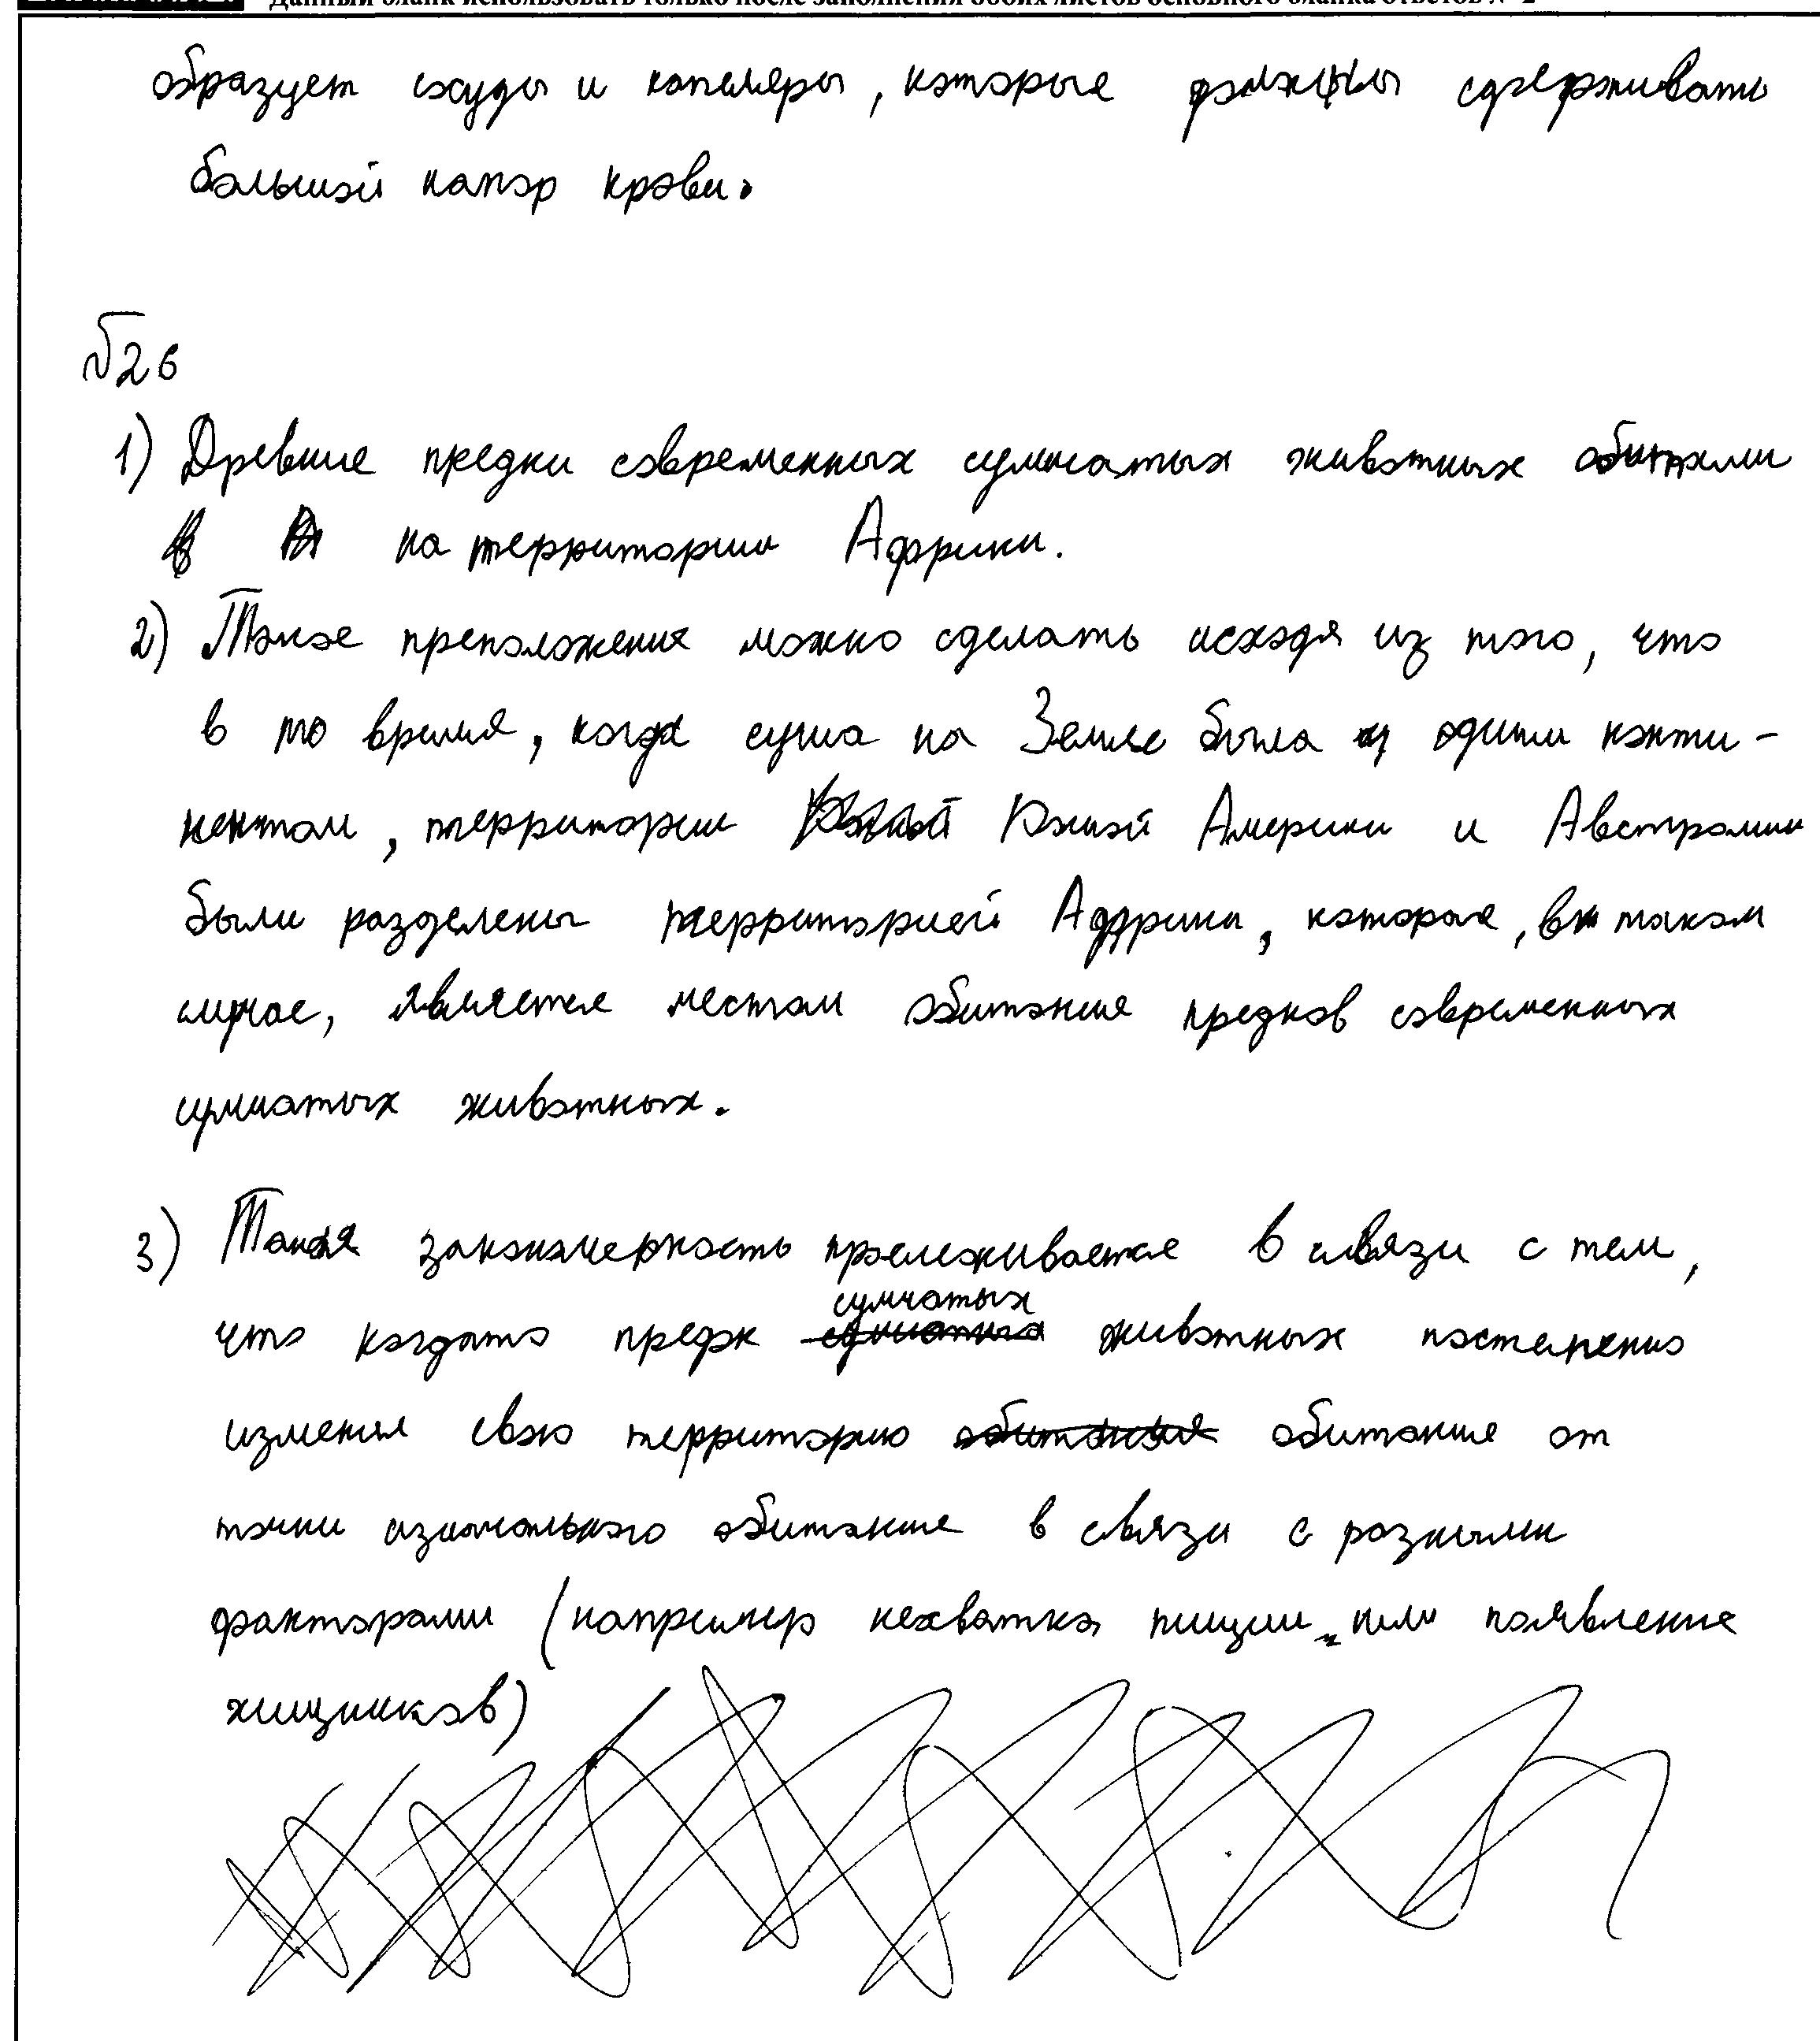 Данный бланк использовать только после заполнения обоих листов основного бланка ответов № 2
образует сосуды и капиляры, которые должны сдерживать
большой напор крови.
№26
1) Древние предки современных сумчатых животных обитали
на территории Африки.
2) Такое преположения можно сделать исходя из того, что
в то время, когда суша на Земле была одним конти-
нентом, территории Южной Америки и Австралии
были разделены территорией Африки, которая, в таком
случае, является местом обитания предков современных
сумчатых животных.
3) Такая закономерность прослеживается в связи с тем,
что когдато предок сумчатых животных постепенно
изменял свою территорию обитание от
точки изночального обитания в связи с разными
факторами (например нехватка пищи или появление
хищников)